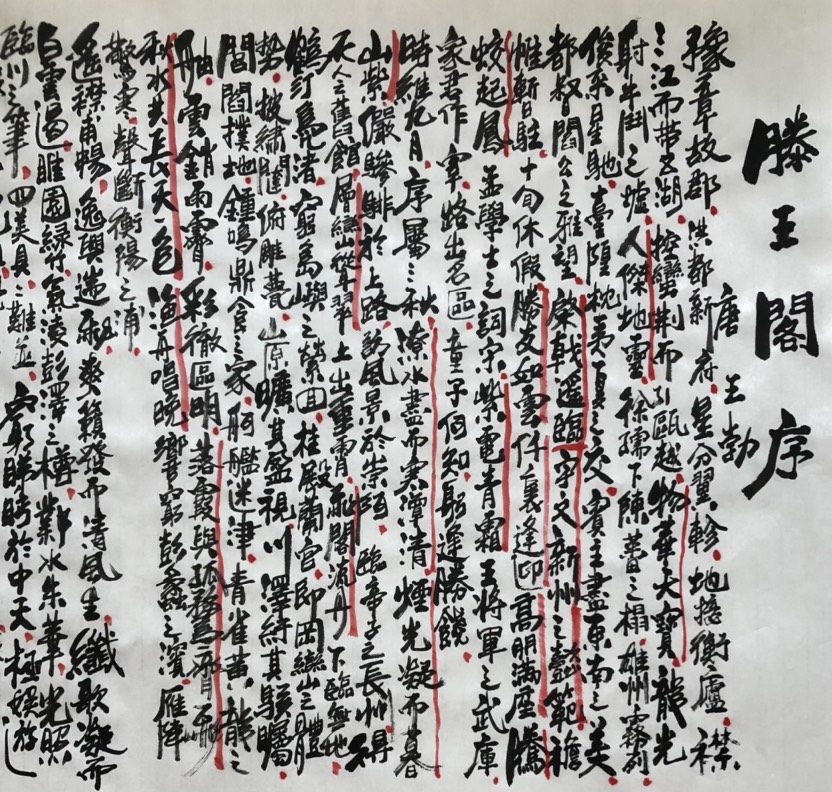 滕王閣序
唐 王勃
豫章故郡洪都新府星分翼軫地接衡廬襟
三江而帶五湖控蠻荊而引甌越物華天寶龍光
射牛鬥之墟人傑地靈徐孺下陳蕃之榻雄州霧列
俊采星馳臺隍枕夷夏之交賓主盡東南之美
都督閻公之雅望棨戟遙臨宇文新州之懿範襜
帷暫駐十旬休假勝友如雲千裏逢迎高朋滿座騰
蛟起鳳孟學士之詞宗紫電青霜王將軍之武庫
家君作宰路出名區童子何知躬逢勝餞
時維九月序屬三秋潦水盡而寒潭清煙光凝而暮
山紫儼驂騑於上路訪風景於崇阿臨帝子之長洲得
天人之舊館層巒聳翠上出重霄飛閣流丹下臨無地
鶴汀鳧渚窮島嶼之縈回桂殿蘭宮即岡巒之體
勢披繡闥俯雕甍山原曠其盈視川澤紆其駭矚
閭閻撲地鍾鳴鼎食之家舸艦迷津青雀黃龍之
舳雲銷雨霽彩徹區明落霞與孤鶩齊飛
秋水共長天一色漁舟唱晚響窮彭蠡之濱雁陣
驚寒聲斷衡陽之浦
遙襟甫暢逸興遄飛爽籟發而清風生纖歌凝而
白雲遏睢園綠竹氣淩彭澤之樽鄴水朱華光照
臨川之筆四美具二難並窮睇眄於中天極娛游